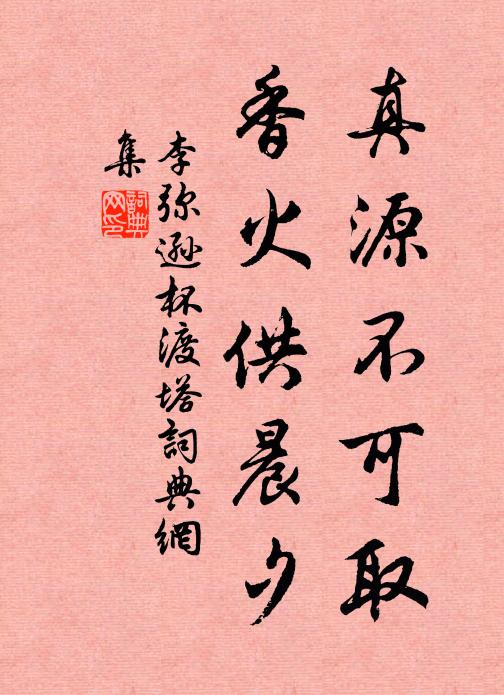 真源不可取
香火供晨夕
李弥遜杯渡塔詞典網
集
詞典
网印